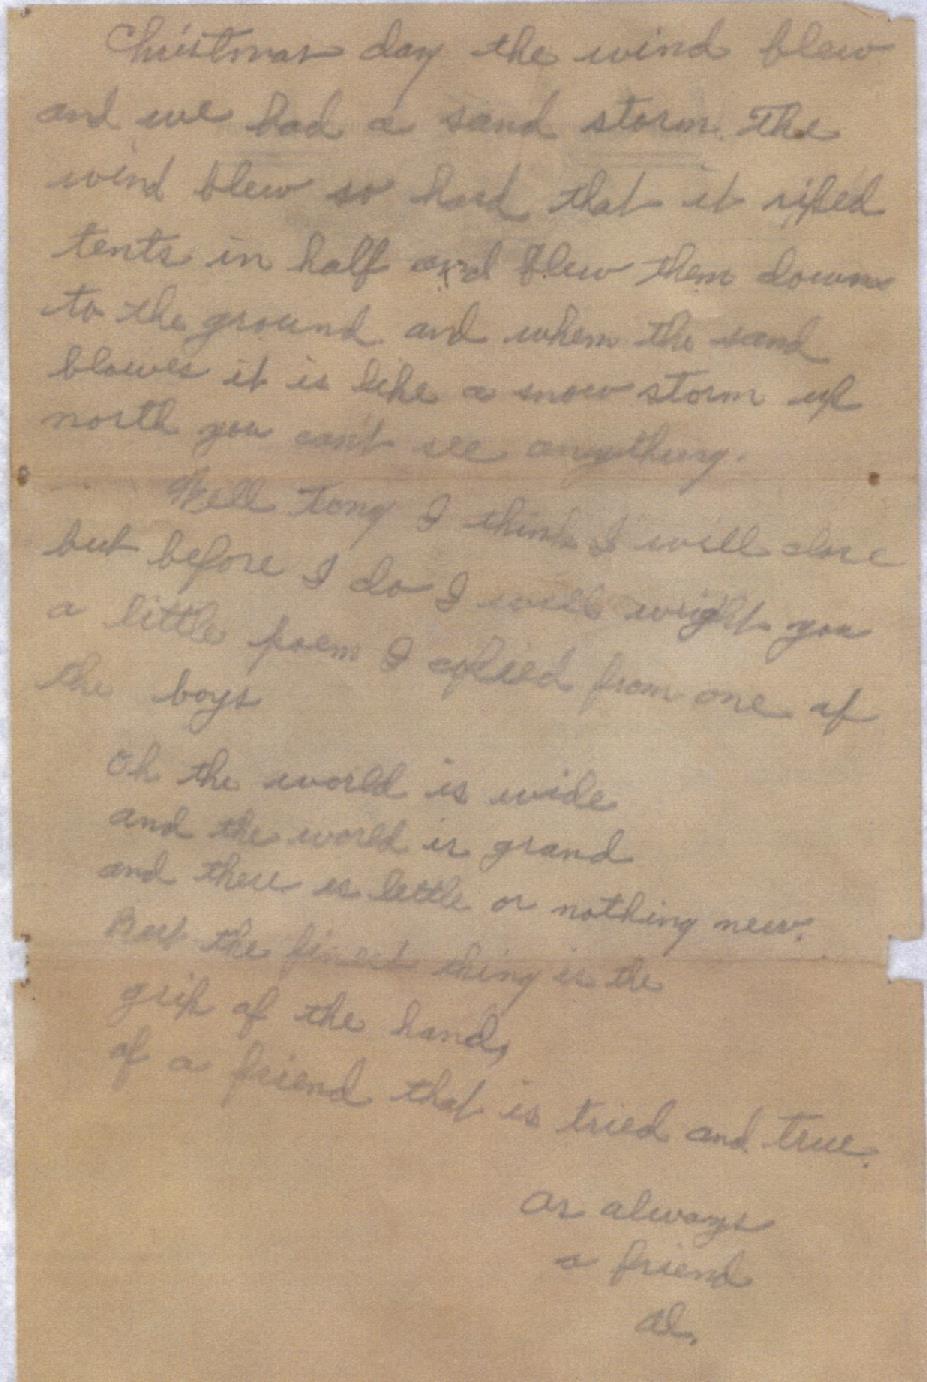 Christmas day the wind blew
and we had a sand storm. The
wind blew so hard that it ripped
tents in half and blew them down
to the ground and when the sand
blowes it is like a snow storm up
north you can't see anything.
Well Tony I think I will close
but before I do I will wright you
a little poem I copied from one of
the boys
Oh the world is wide
and the world is grand
and there is little or nothing new.
But the finest thing is the
grip of the hand,
of a friend that is tried and true.
As always
a friend
Al.